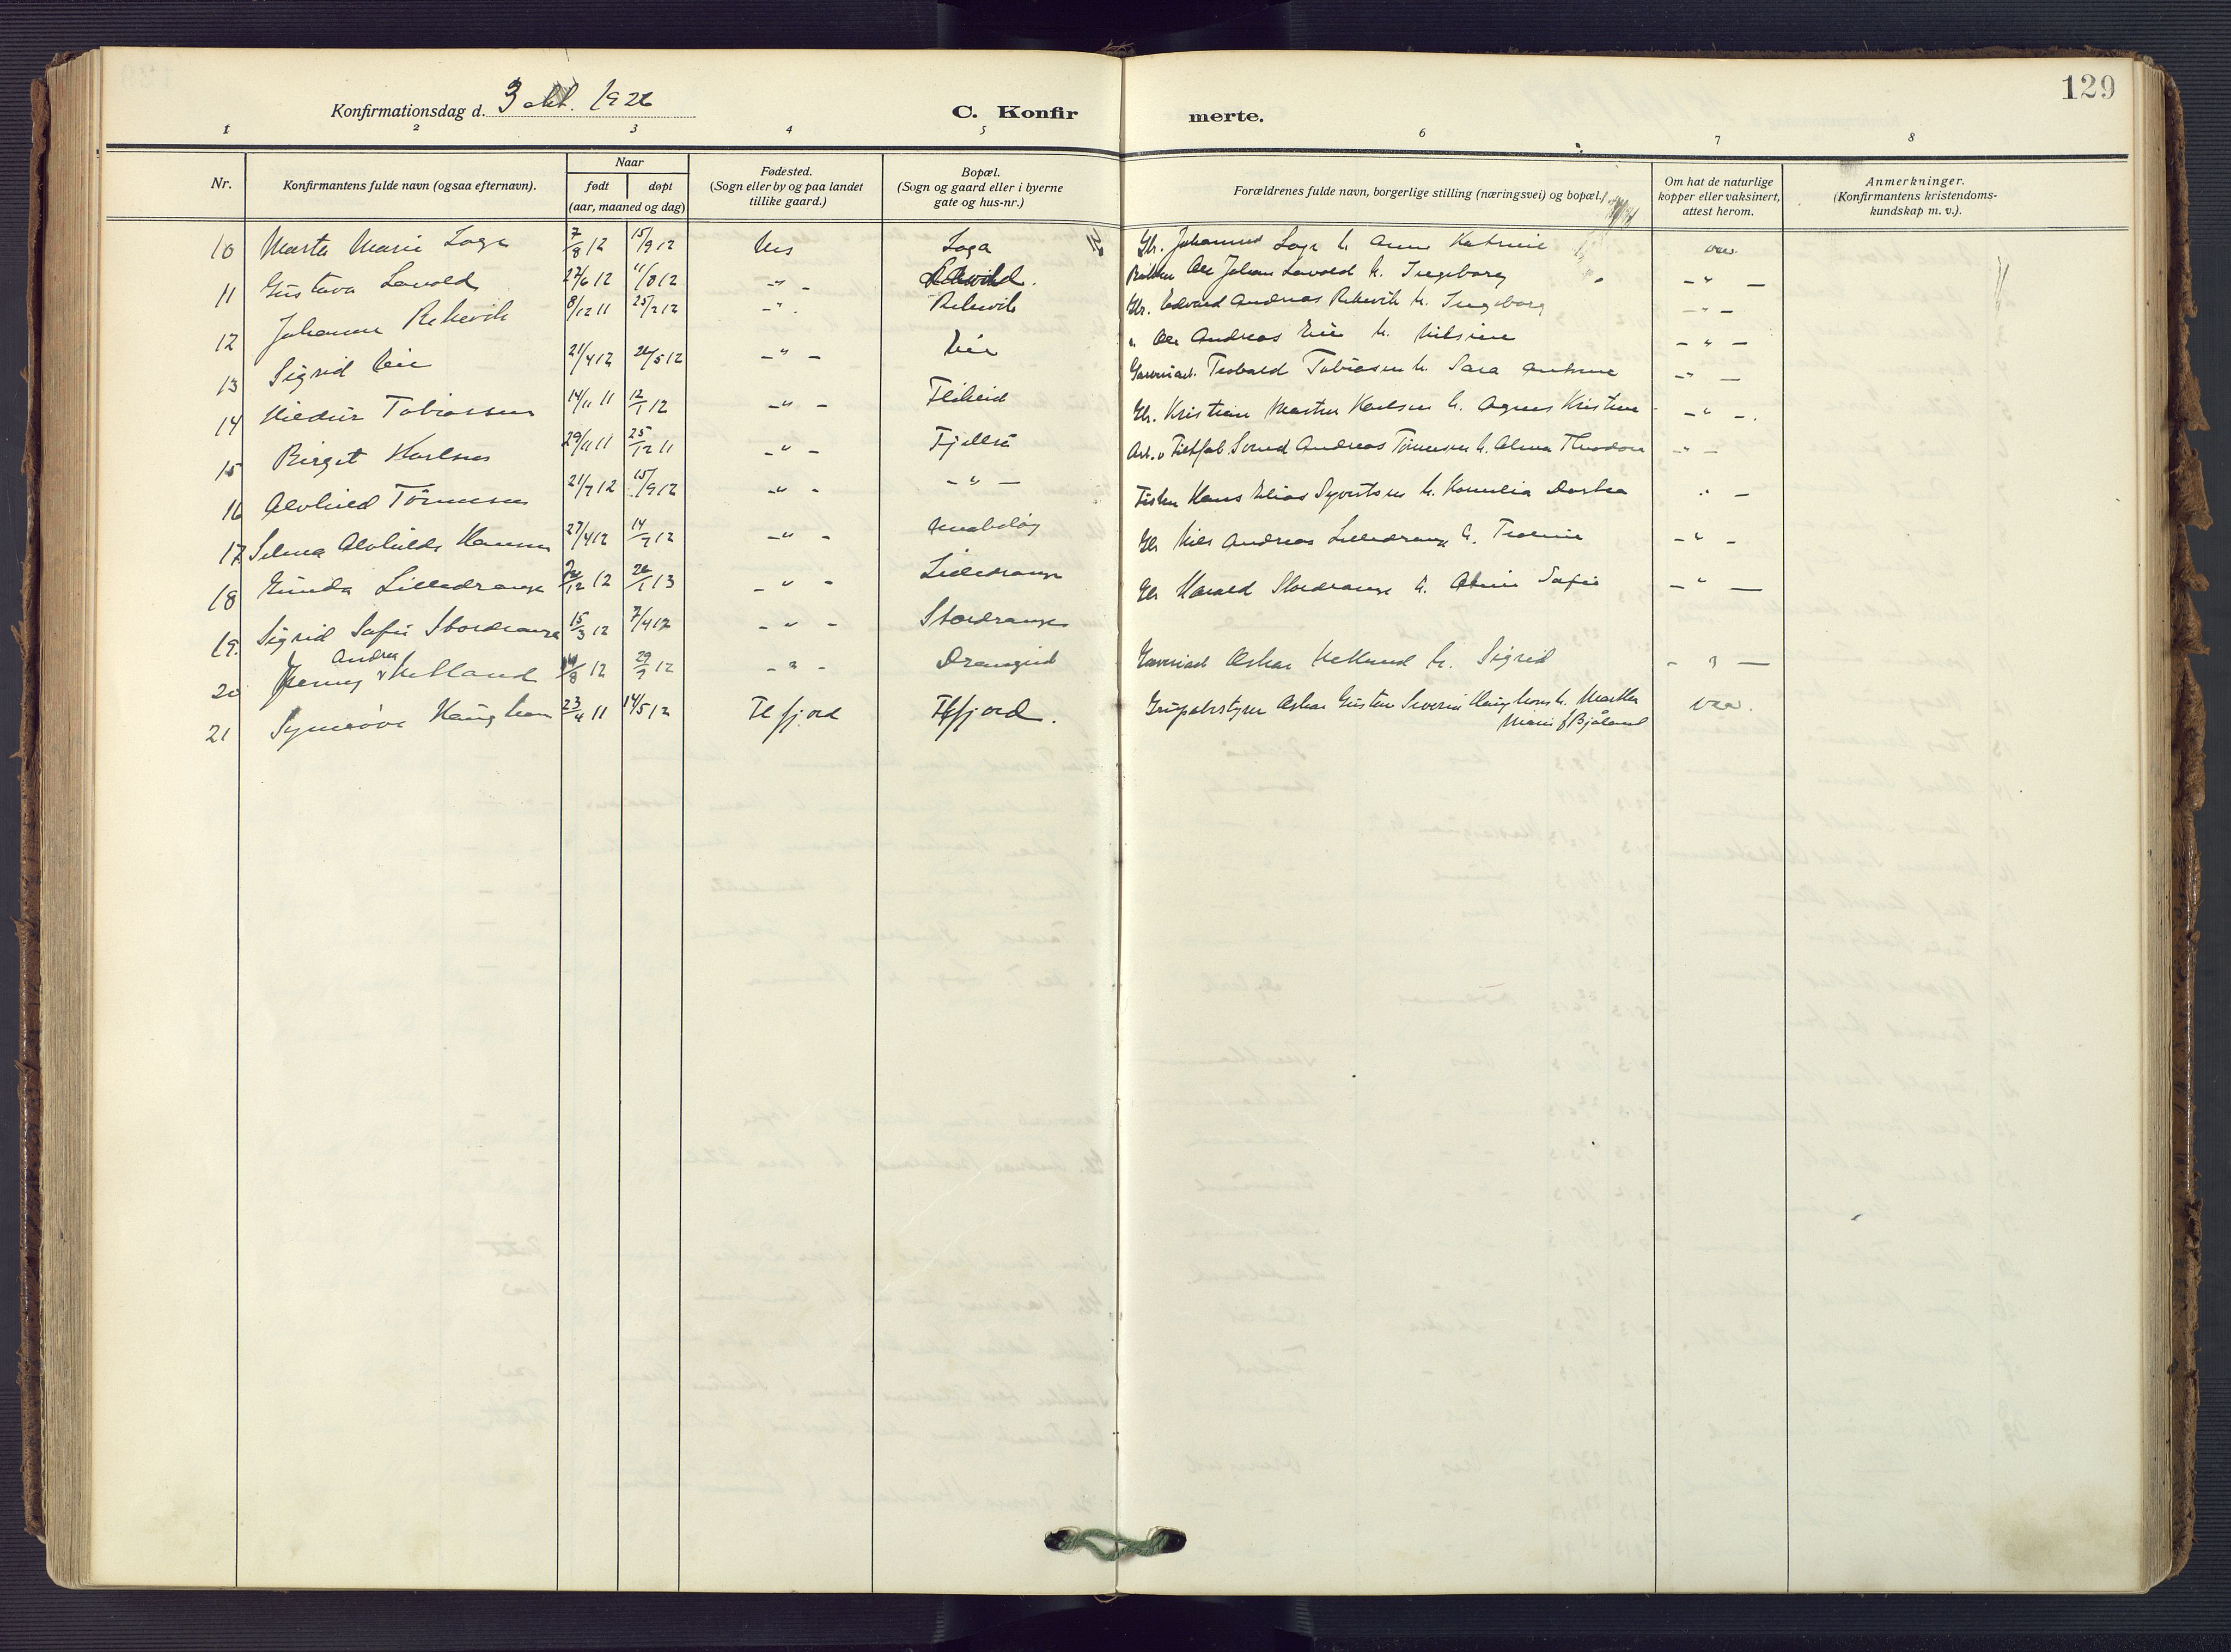 129
Konfirmationsdag d. 3 okt. 1926
C. Konfirmerte.
1 2 3 4 5 6 7 8
Nr.
Konfirmantens fulde navn (ogsaa efternavn).
Naar
født døpt
(aar, maaned og dag)
Fødested.
(Sogn eller by og paa landet
tillike gaard.)
Bopæl.
(Sogn og gaard eller i byerne
gate og hus-nr.)
Forældrenes fulde navn, borgerlige stilling (næringsvei) og bopæl.
Om hat de naturlige
kopper eller vaksinert,
attest herom.
Anmerkninger.
(Konfirmantens kristendoms-
kundskap m. v.).
10 Marta Marie Loga 7/8 12 15/9 12 Nes Loga Gbr. Johannes Loga h. Anna Katrine vac
11 Gustava Lavold 27/6 12 11/8 12 -"- Ole Johan Lavold h. Ingeborg -"-
12 Johanne Rekevik 8/12 11 25/2 12 -"- Rekevik Gbr. Edvard Andreas Rekevik h. Ingeborg -"-
13 Sigrid Eie 21/4 12 26/5 12 -"- Eie " Ole Andreas Eie h. Nilsine -"-
14 Hildur Tobiassen 14/11 11 12/1 12 -"- Flikeid Garveriarb. Teobald Tobiasen h. Sara -"-
15 Birgit Karlsen 29/11 11 25/12 11 -"- Fjellså Gbr. Kristian Martin Karlsen h. Agnes Kristine -"-
16 Alvhild Tønnesen 21/7 12 15/9 12 -"- -"- Andreas Tønnesen h. Alma Theodora -"-
17 Selma Alvhilde Hansen 27/4 12 14/7 12 -"- Anabeløy Fisker Hans Elias Syvertsen h. Kornelia Dortea "-
18 Gunda Lilledrange /12 12 26/1 13 -"- Lilledrange Gb Nils Andreas Lilledrange h. Trobine -"-
19. Sigrid Sofie Stordrange 15/3 12 7/4 12 -"- Stordrange Gb Harald Stordrange h. Sofie -"-
20 Jenny Andrea Netland /8 12 29/9 12 -"- Drangeid Garveriarb Oskar Netland h. Sigrid -"-
21 Synnøve Haughom 23/4 11 14/5 12 Flfjord Flfjord. Oskar Gustav Severin Haughom h. Martha
Marie f Bjåland vac.